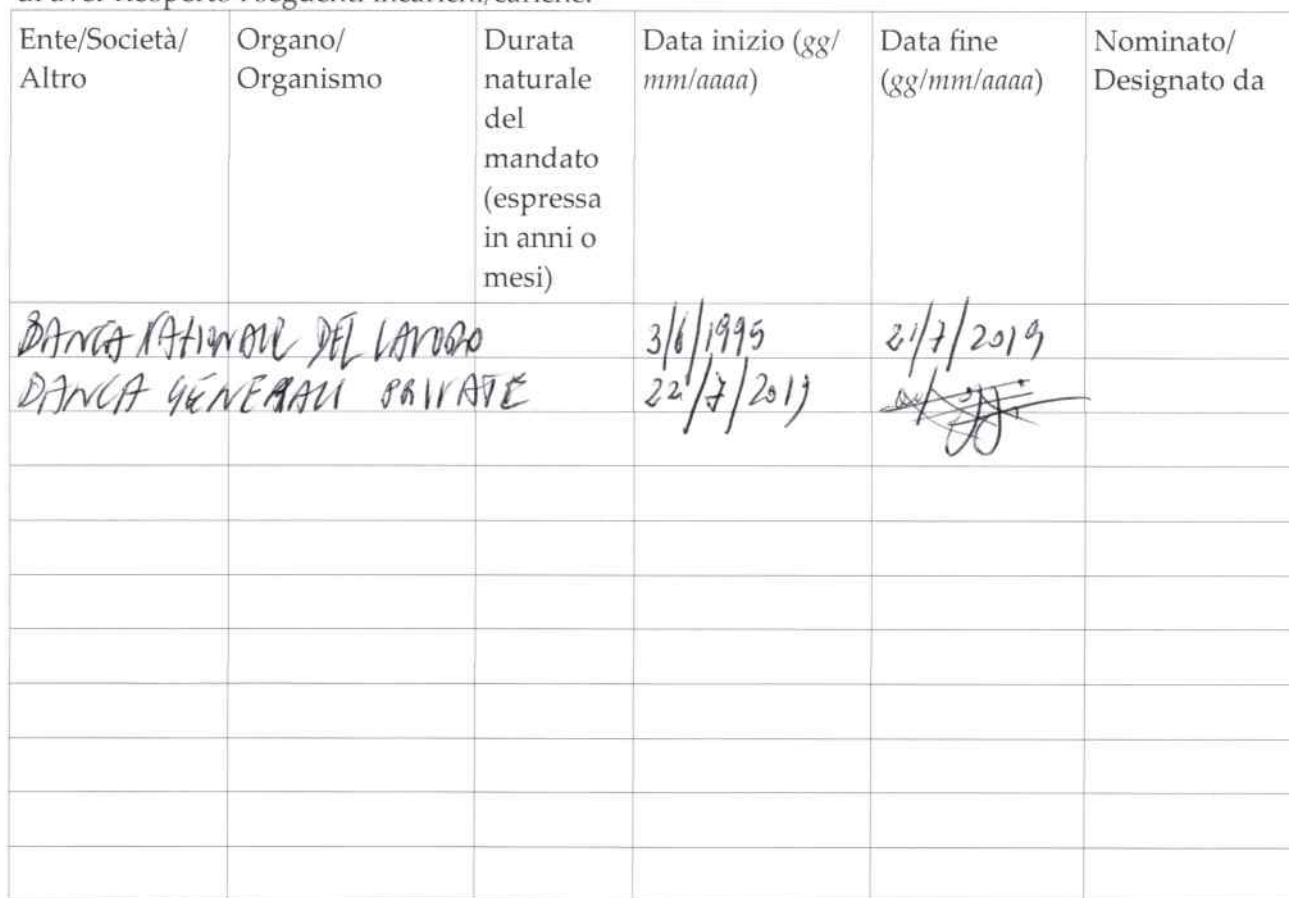 di aver ricoperto i seguenti incarichi/cariche:
Ente/Società/ Altro Organo/ Organismo Durata naturale del mandato (espressa in anni o mesi) Data inizio (gg/ mm/aaaa) Data fine (gg/mm/aaaa) Nominato/ Designato da
BANCA NAZIONALE DEL LAVORO 3/6/1995 21/7/2019
BANCA GENERALI PRIVATE 22/7/2019